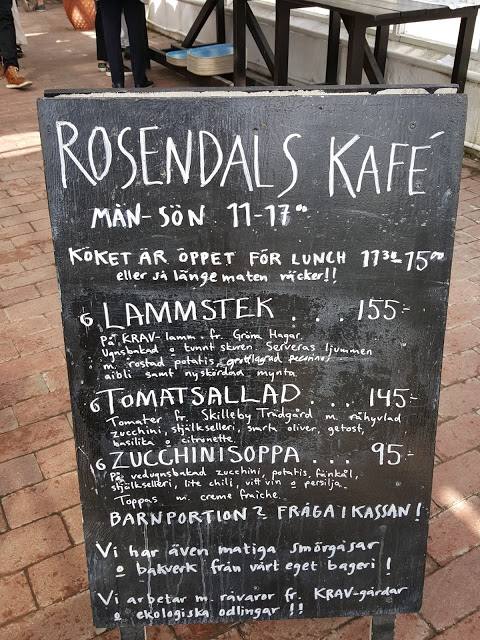 ROSENDALS KAFÉ
MÅN-SÖN 11-17⁰⁰
KÖKET ÄR ÖPPET FÖR LUNCH 11³⁰-15⁰⁰
eller så länge maten räcker!!
LAMMSTEK . . . 155:-
På KRAV-lamm fr. Gröna Hagar.
Ugnsbakad o tunnt skuren. Serveras ljummen
m. rostad potatis, grovlagrad pecorino,
aioli samt nyskördad mynta.
TOMATSALLAD . . . 145:-
Tomater fr. Skilleby Trädgård m. råhyvlad
zucchini, stjälkselleri, svarta oliver, getost,
basilika o citronette.
ZUCCHINISOPPA . . . 95:-
På vedugnsbakad zucchini, potatis, fänkål,
stjälkselleri, lite chili, vitt vin o persilja.
Toppas m. creme fraiche.
BARNPORTION? FRÅGA I KASSAN!
Vi har även matiga smörgåsar
o bakverk från vårt eget bageri!
Vi arbetar m. råvaror fr. KRAV-gårdar
o ekologiska odlingar!!